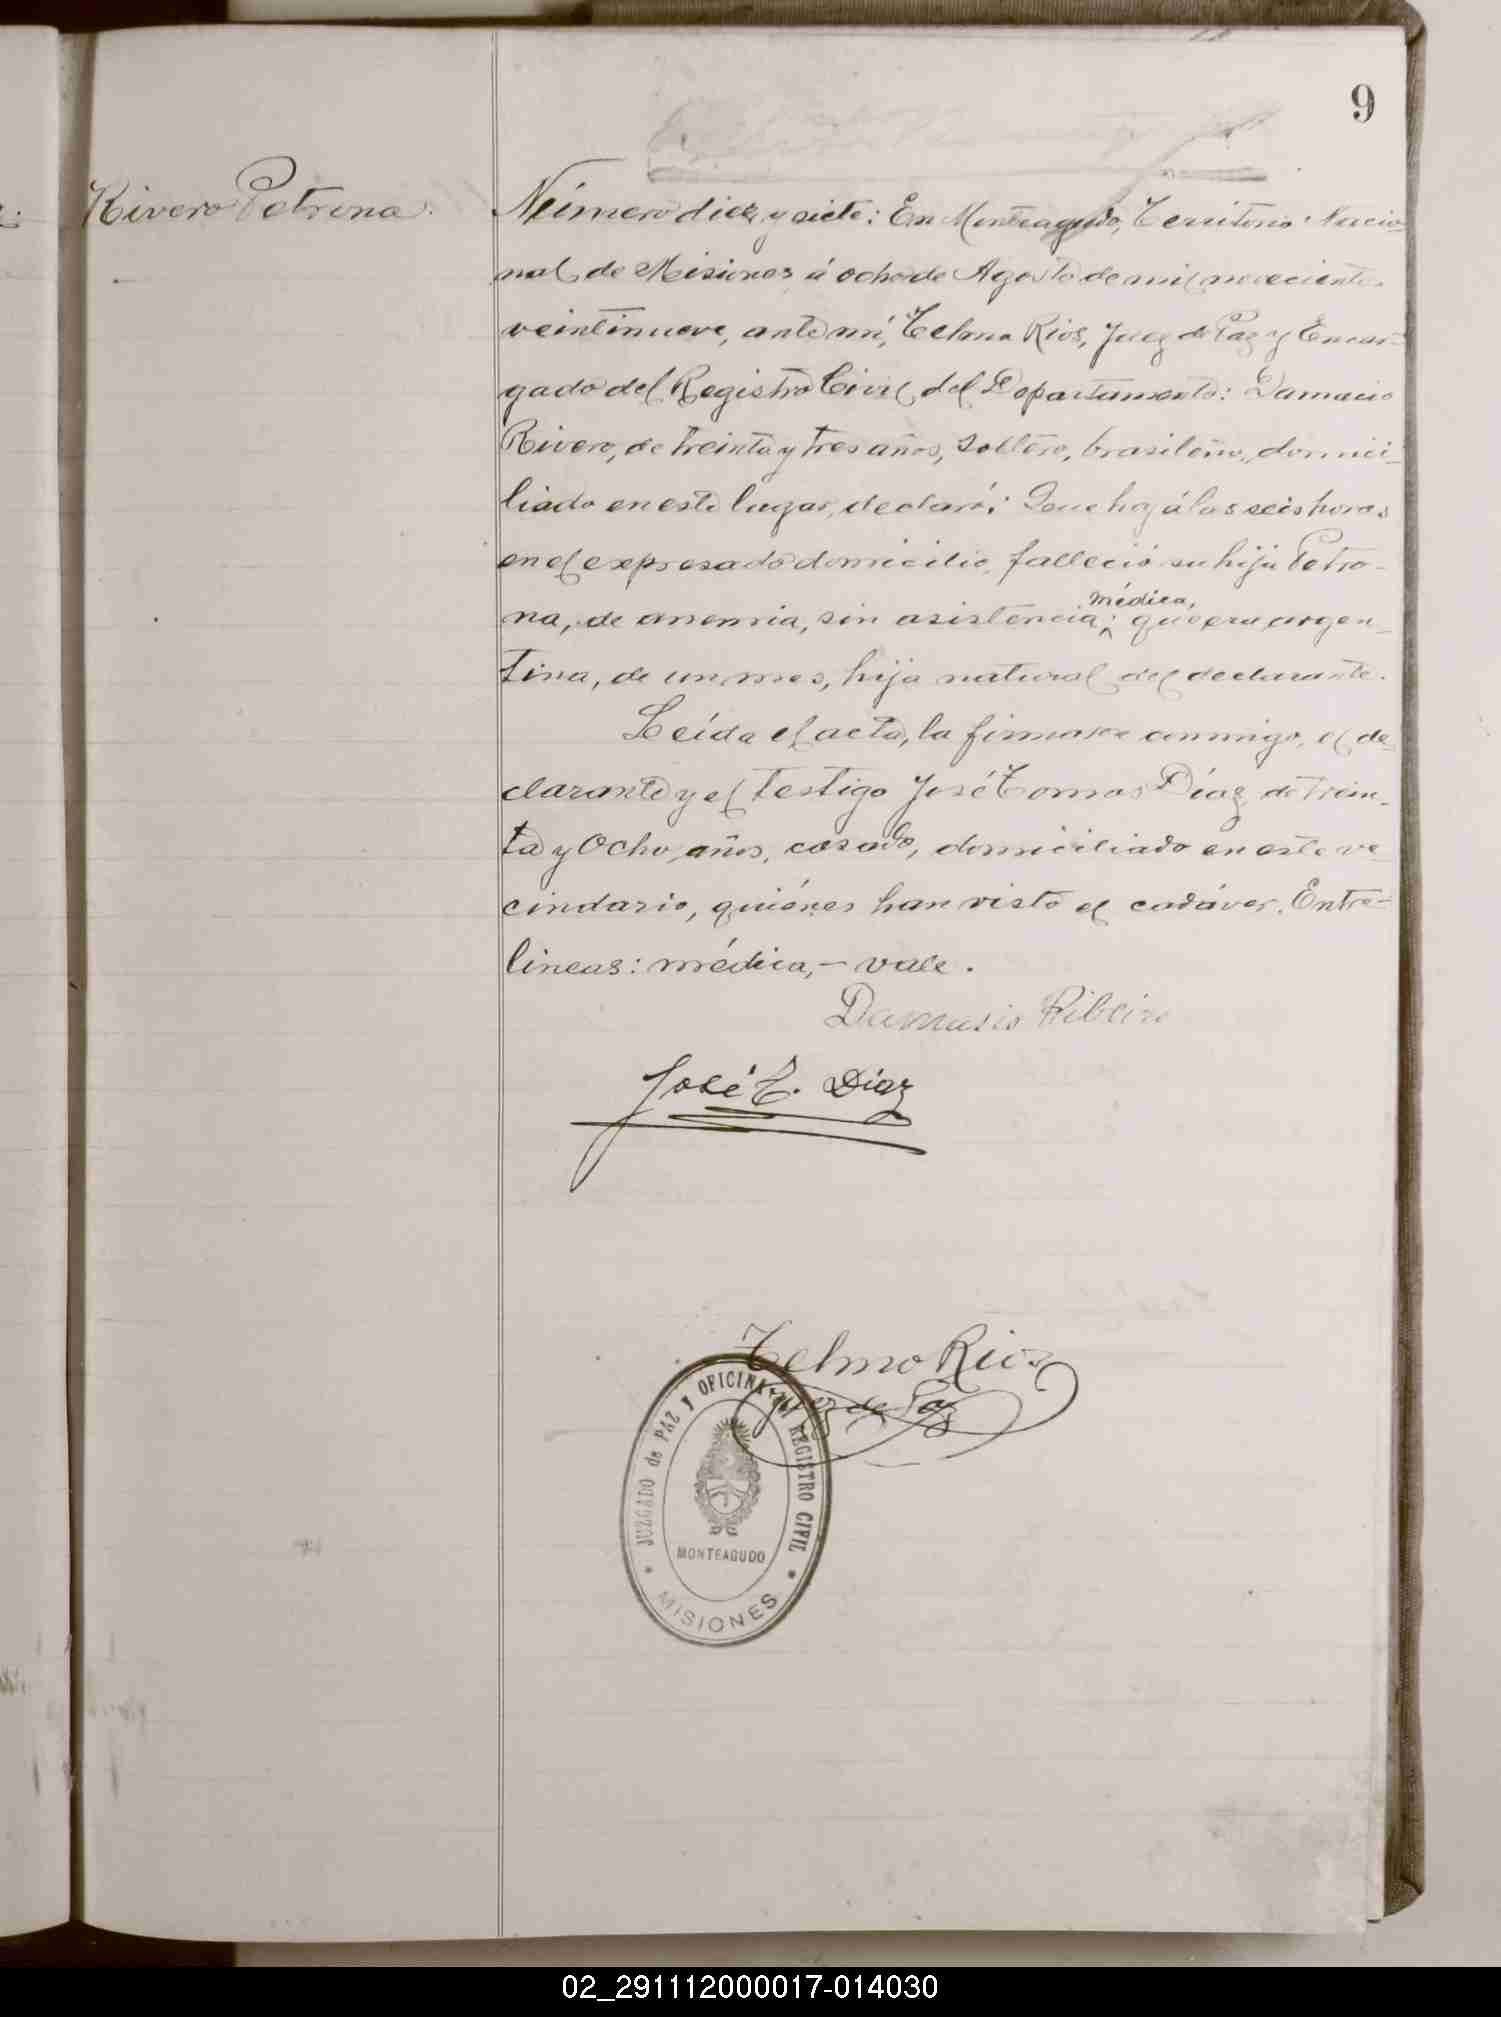 9
Rivero Petrona.
Número diez y siete: En Monteagudo, Territorio Nacio-
nal de Misiones á ocho de Agosto de mil novecientos
veintinueve, ante mí, Telmo Rios, Juez de Paz y Encar-
gado del Registro Civil del Departamento: Damacio
Rivero, de treinta y tres años, soltero, brasileño, domici-
liado en este lugar, declaró: Que hoy á las seis horas
en el expresado domicilio, falleció su hija Petro-
na, de anemia, sin asistencia médica, que era argen-
tina, de un mes, hija natural del declarante.
Leída el acta, la firmaron conmigo, el de-
clarante y el testigo José Tomas Díaz de trein-
ta y Ocho años, casado, domiciliado en este ve-
cindario, quiénes han visto el cadáver. Entre-
lineas: médica,- vale.
Damasio Ribeiro
José T. Díaz
Telmo Rios
Juez de Paz
JUZGADO de PAZ Y OFICINA DEL REGISTRO CIVIL
MONTEAGUDO
MISIONES
02_291112000017-014030